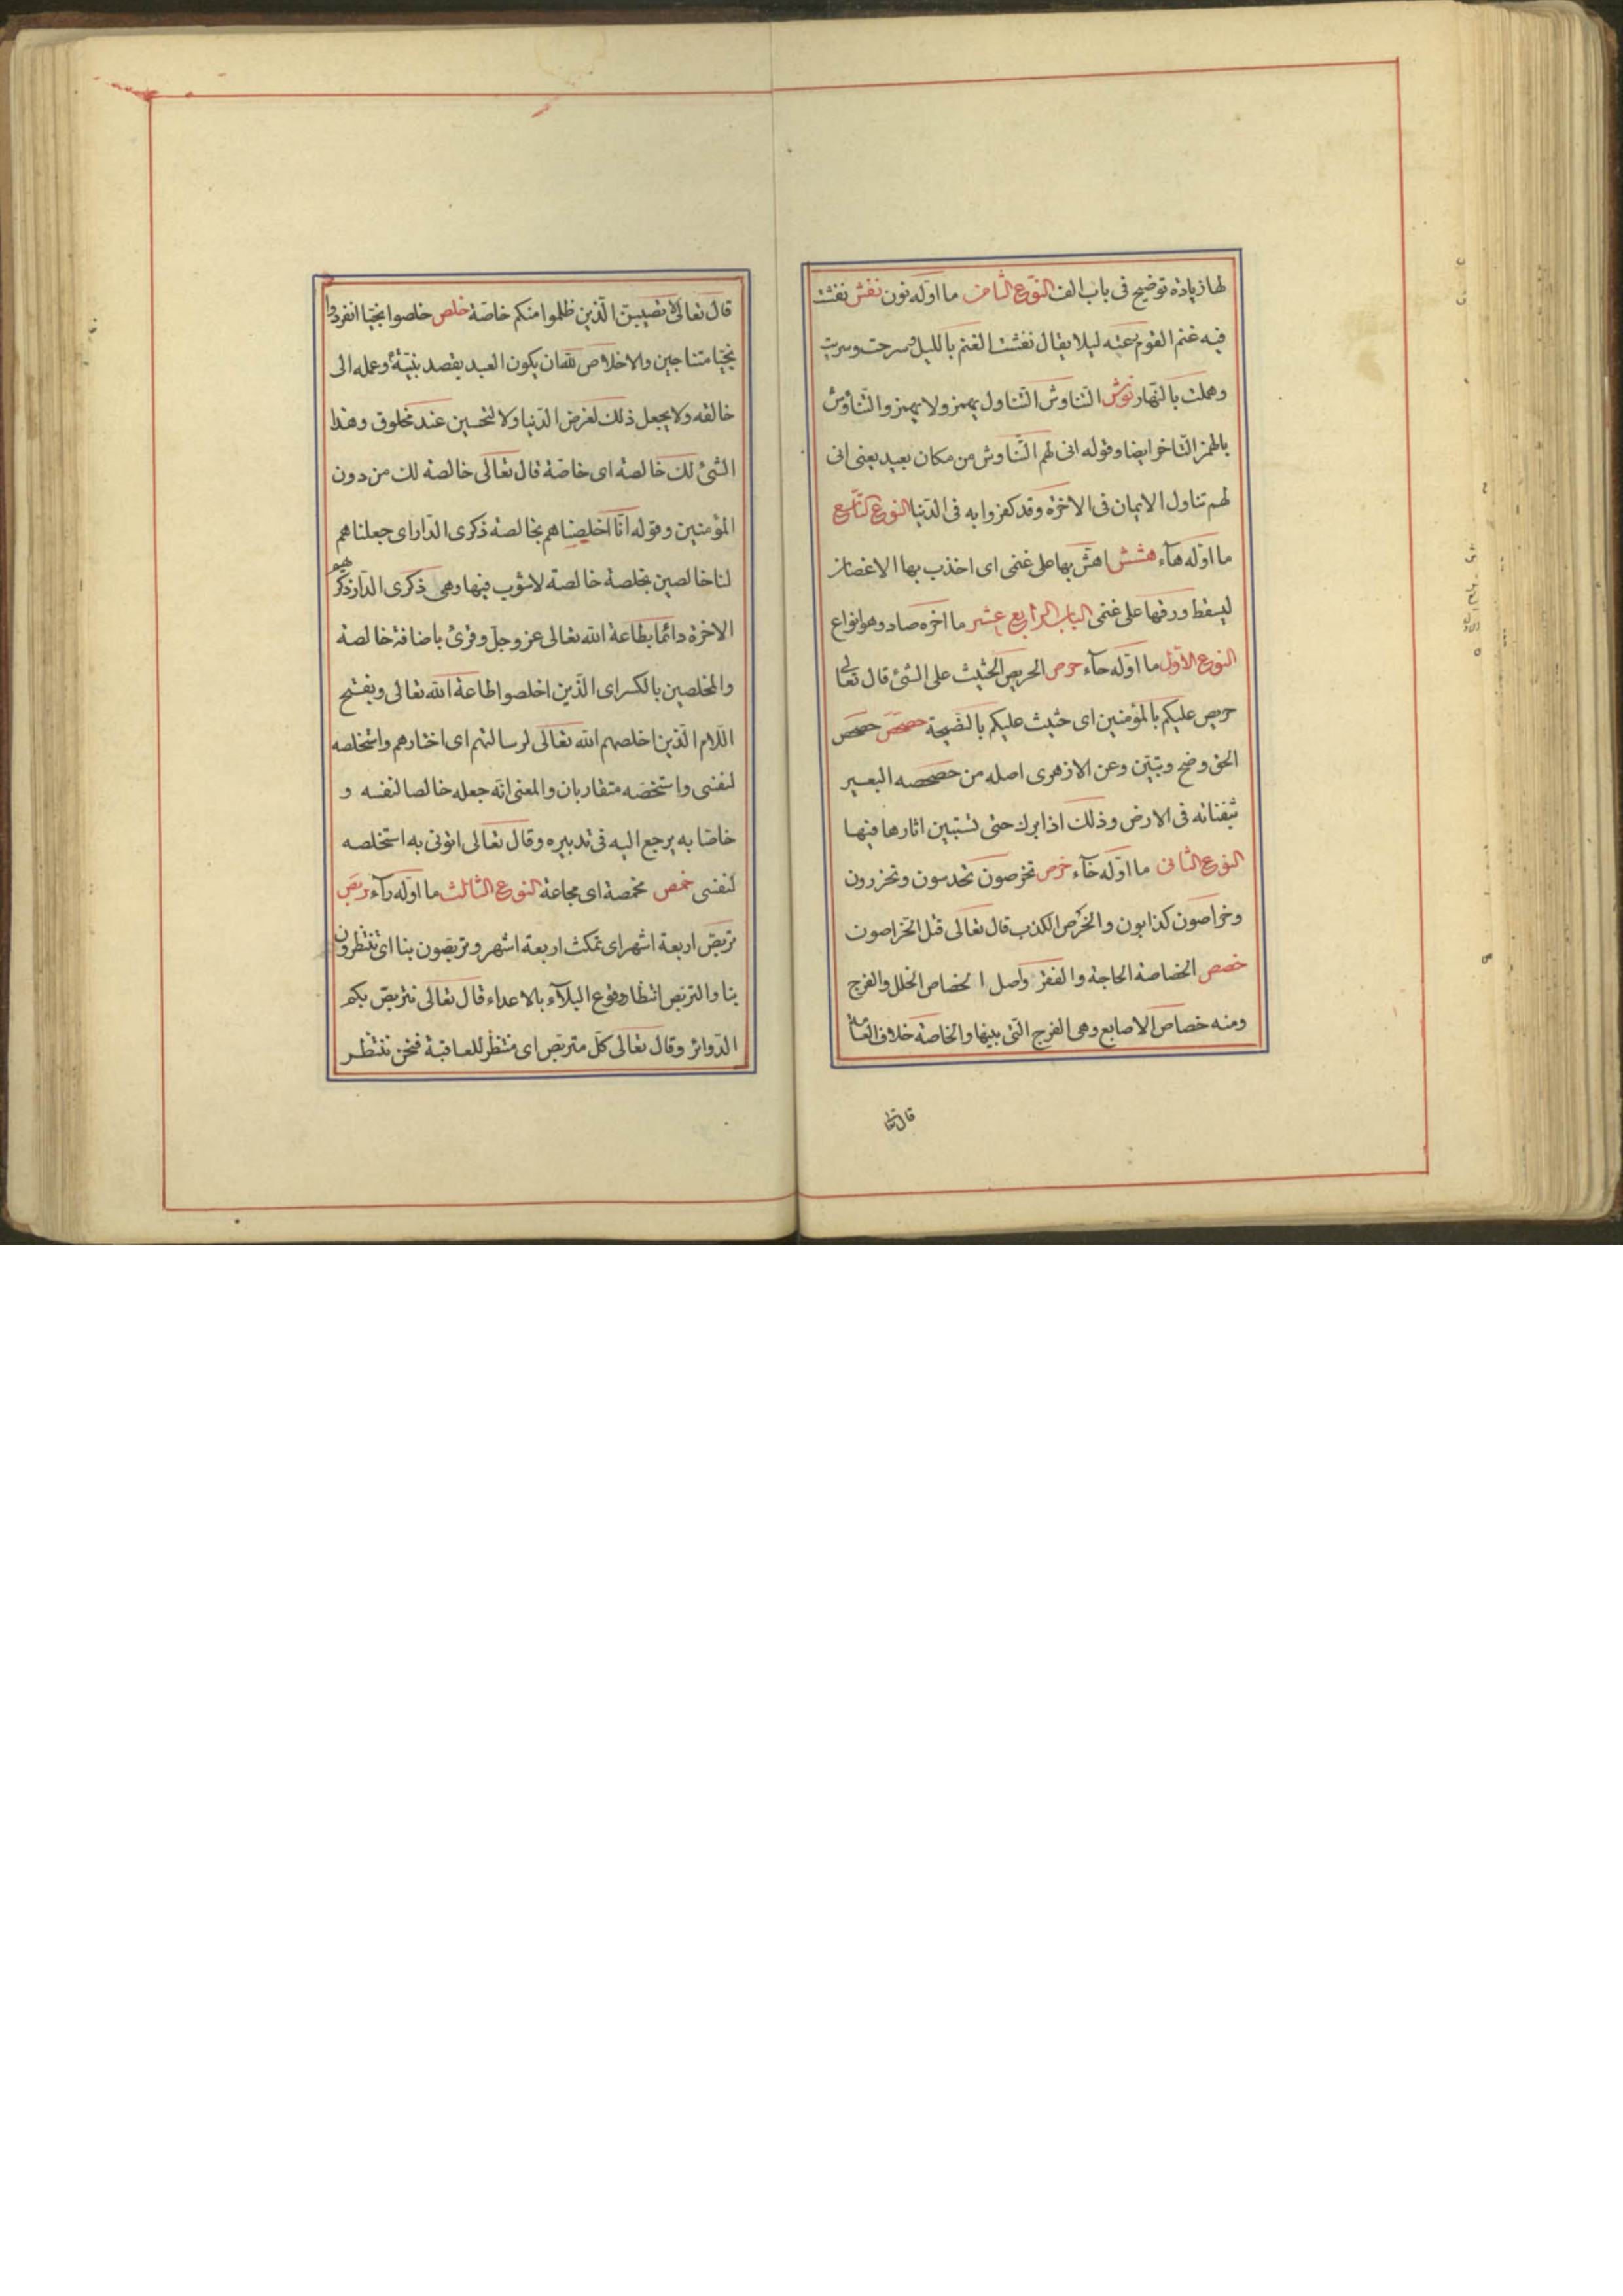 لها زيادة توضيح فى باب الف النوع الثامن ما اوّله نون نفش نفشت
فيه غنم القوم رعته ليلا يقال نفشت الغنم بالليل وسرحت وسربت
وهملت بالنهار نوش التناوش التناول يهمز ولا يهمز والتناؤش
بالهمز التاخر ايضا وقوله انى لهم التّناوش من مكان بعيد يعنى انى
لهم تناول الايمان فى الاخرة وقد كفروا به فى الدّنيا النوع التاسع
ما اوّله هآء هشش اهشّ بها على غنمى اى اخذب بها الاغصان
ليسقط ورقها على غنمى الباب الرابع عشر ما اخره صاد وهو انواع
النوع الاوّل ما اوّله حآء حرص الحريص الحثيث على الشئ قال تعالى
حريص عليكم بالمؤمنين اى حثيث عليكم بالنصيحة حصحص حصحص
الحق وضح وتبيّن وعن الازهرى اصله من حصحصه البعير
بثفناته فى الارض وذلك اذا برك حتى تستبين اثارها فيها
النوع الثانى ما اوّله خآء خرص تخرصون تحدسون وتحزرون
وخراصون كذابون والخرص الكذب قال تعالى قتل الخراصون
خصص الخصاصة الحاجة والفقر واصل الخصاص الخلل والفرج
ومنه خصاص الاصابع وهى الفرج التى بينها والخاصة خلاف العامّة
قال تعا
قال تعالى لا تصيبنّ الّذين ظلموا منكم خاصّة خلص خلصوا نجيّا انفردوا
نجيّا متناجين والاخلاص لله ان يكون العبد يقصد بنيّته وعمله الى
خالقه ولا يجعل ذلك لغرض الدّنيا ولا لتحسين عند مخلوق وهذا
الشئ لك خالصة اى خاصّة قال تعالى خالصة لك من دون
المؤمنين وقوله انّا اخلصناهم بخالصة ذكرى الدّار اى جعلناهم
لنا خالصين بخلصة خالصة لا شوب فيها وهى ذكرى الدّار ذكرهم
الاخرة دائما بطاعة الله تعالى عز وجل وقرئ باضافة خالصة
والمخلصين بالكسر اى الّذين اخلصوا طاعة الله تعالى وبفتح
اللام الّذين اخلصهم الله تعالى لرسالتهم اى اختارهم واستخلصه
لنفسى واستخصّه متقاربان والمعنى انّه جعله خالصا لنفسه و
خاصّا به يرجع اليه فى تدبيره وقال تعالى ائتونى به استخلصه
لنفسى خمص مخمصة اى مجاعة النوع الثالث ما اوّله رآء ربص
تربص اربعة اشهر اى تمكث اربعة اشهر وتربصون بنا اى تنتظرون
بنا والتربص انتظار وقوع البلآء بالاعداء قال تعالى نتربص بكم
الدّوائر وقال تعالى كلّ متربص اى منتظر للعاقبة فنحن ننتظر